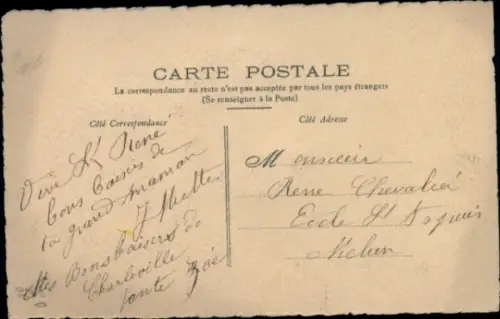 CARTE POSTALE
La correspondance au recto n'est pas acceptée par tous les pays étrangers
(Se renseigner à la Poste)
Côté Correspondance
Côté Adresse
Vive St René
bons baisers de
ta grand maman
Mes Bons baisers de
Charleville
tante Zoé
Monsieur
Rene Chevalier
Ecole St Aspais
Melun